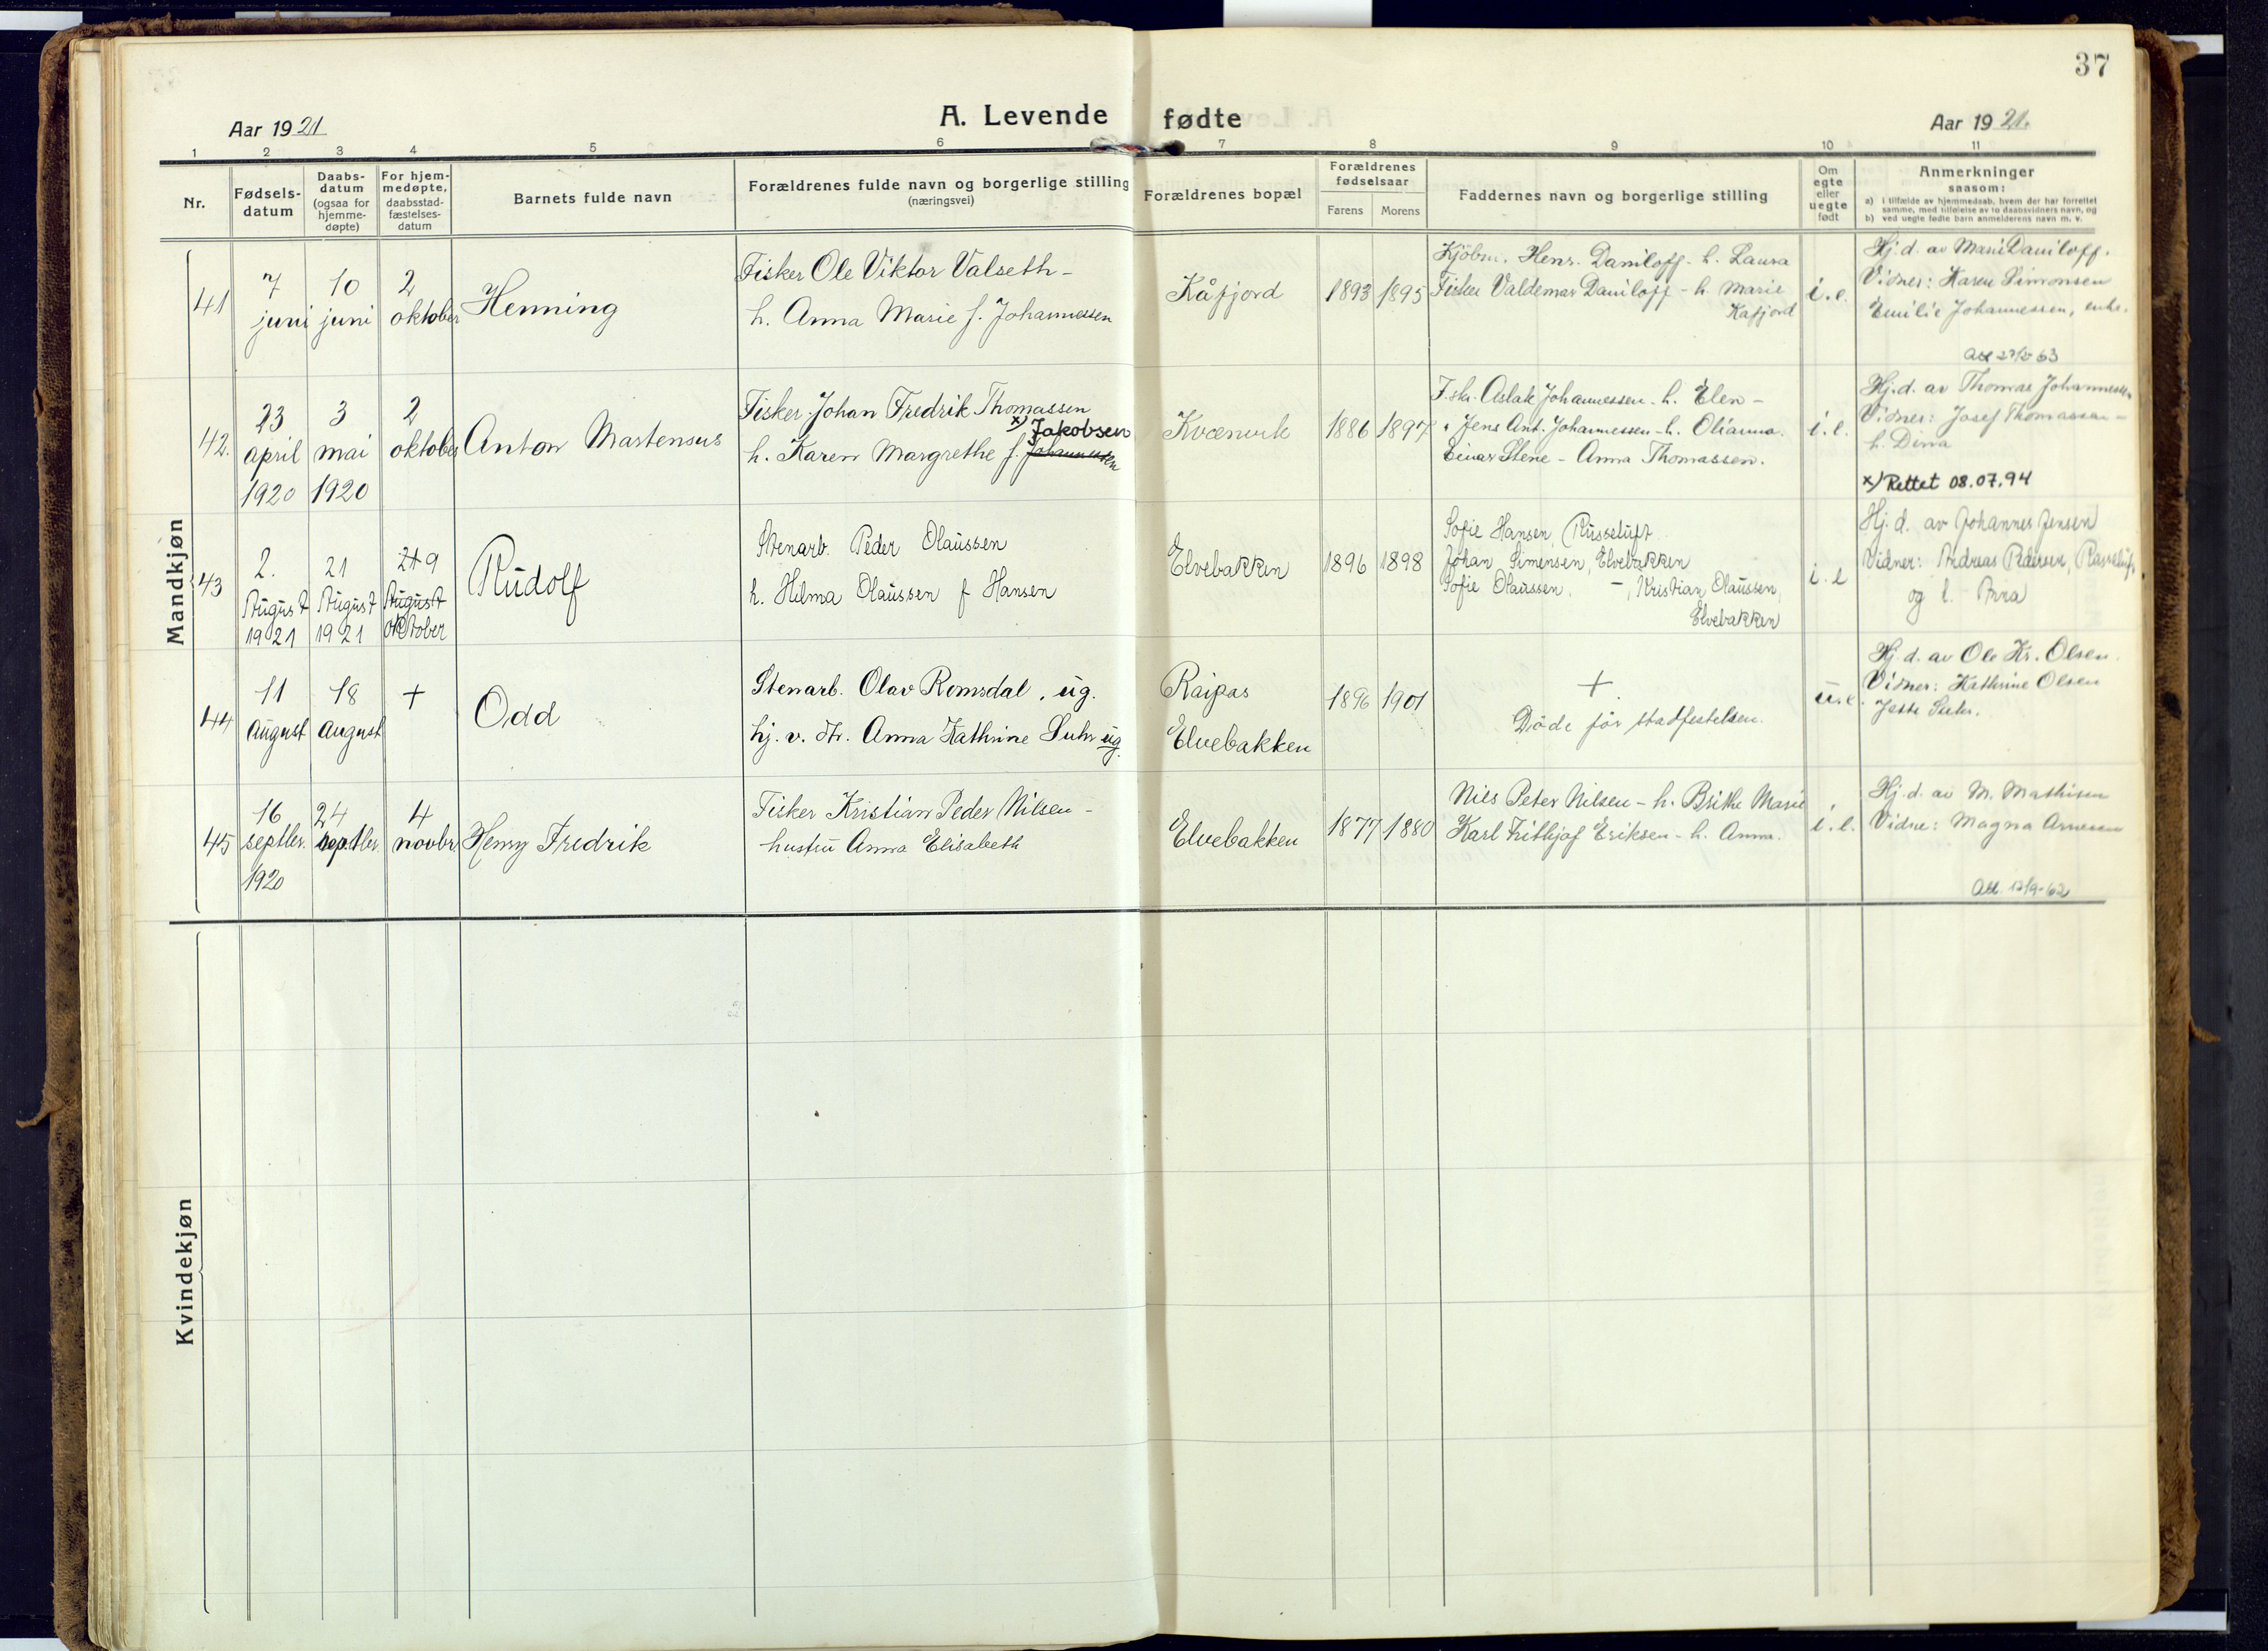 37
Aar 1921
A. Levende fødte
Aar 1921.
1 2 3 4 5 6 7 8 9 10 11
Nr.
Fødsels-
datum
Daabs-
datum
(ogsaa for
hjemme-
døpte)
For hjem-
medøpte,
daabsstad-
fæstelses-
datum
Barnets fulde navn
Forældrenes fulde navn og borgerlige stilling
(næringsvei)
Forældrenes bopæl
Forældrenes
fødselsaar
Farens Morens
Faddernes navn og borgerlige stilling
Om
egte
eller
uegte
født
Anmerkninger
saasom:
a) i tilfælde av hjemmedaab, hvem der har forrettet
samme, med tilføielse av to daabsvidners navn, og
b) ved uegte fødte barn anmelderens navn m. v.
Mandkjøn
41
7
juni
10
juni
2
oktober
Henning
Fisker Ole Viktor Valseth -
h. Anna Marie f. Johannessen
Kåfjord
1893 1895
Kjöbm. Henr. Daniloff - h. Laura
Fisker Valdemar Daniloff - h. Marie
Kafjord
i. e.
Hj. d. av Marie Daniloff.
Vidner: Karen Simonsen
Emilie Johannessen, enke.
42.
23
april
1920
3
mai
1920
2
oktober
Anton Martensus
Fisker Johan Fredrik Thomassen
x) Jakobsen
h. Karen Margrethe f. Johannessen
Kvænvik
1886 1897
F.sk. Aslak Johannessen - h. Elen -
" Jens Ant. Johannessen - h. Olianna.
Einar Stene - Anna Thomassen.
i. e.
Att 27/5 63
Hj. d. av Thomas Johannessen
Vidner: Josef Thomassen -
h. Dina
x) Rettet 08.07.94
43
2.
August
1921
21
August
1921
21 9
August
Oktober
Rudolf
Stenarb. Peder Olaussen
h. Hilma Olaussen f Hansen
Elvebakken
1896 1898
Sofie Hansen, Russeluft
Johan Simensen, Elvebakken
Sofie Olaussen, — , Kristian Olaussen,
Elvebakken
i. e
Hj. d. av Johannes Jensen
Vidner: Andreas Pedersen, Russeluft,
og h. Anna
44
11
August
18
August
+
Odd
Stenarb. Olav Romsdal, ug.
hj. v. Fr. Anna Kathrine Suhr ug.
Raipas
Elvebakken
1896 1901
+
Døde før stadfestelsen.
u. e.
Hj. d. av Ole Kr. Olsen.
Vidner: Kathrine Olsen
Suhr.
45
16
septbr.
1920
24
septbr
4
novbr
Henry Fredrik
Fisker Kristian Peder Nilsen -
hustru Anna Elisabeth
Elvebakken
1877 1880
Nils Peter Nilsen - h. Brithe Marie
Karl Frithjof Eriksen - h. Anna.
i. e.
Hj. d. av M. Mathisen
Vidne: Magna Arnesen
Att. 12/9-62
Kvindekjøn